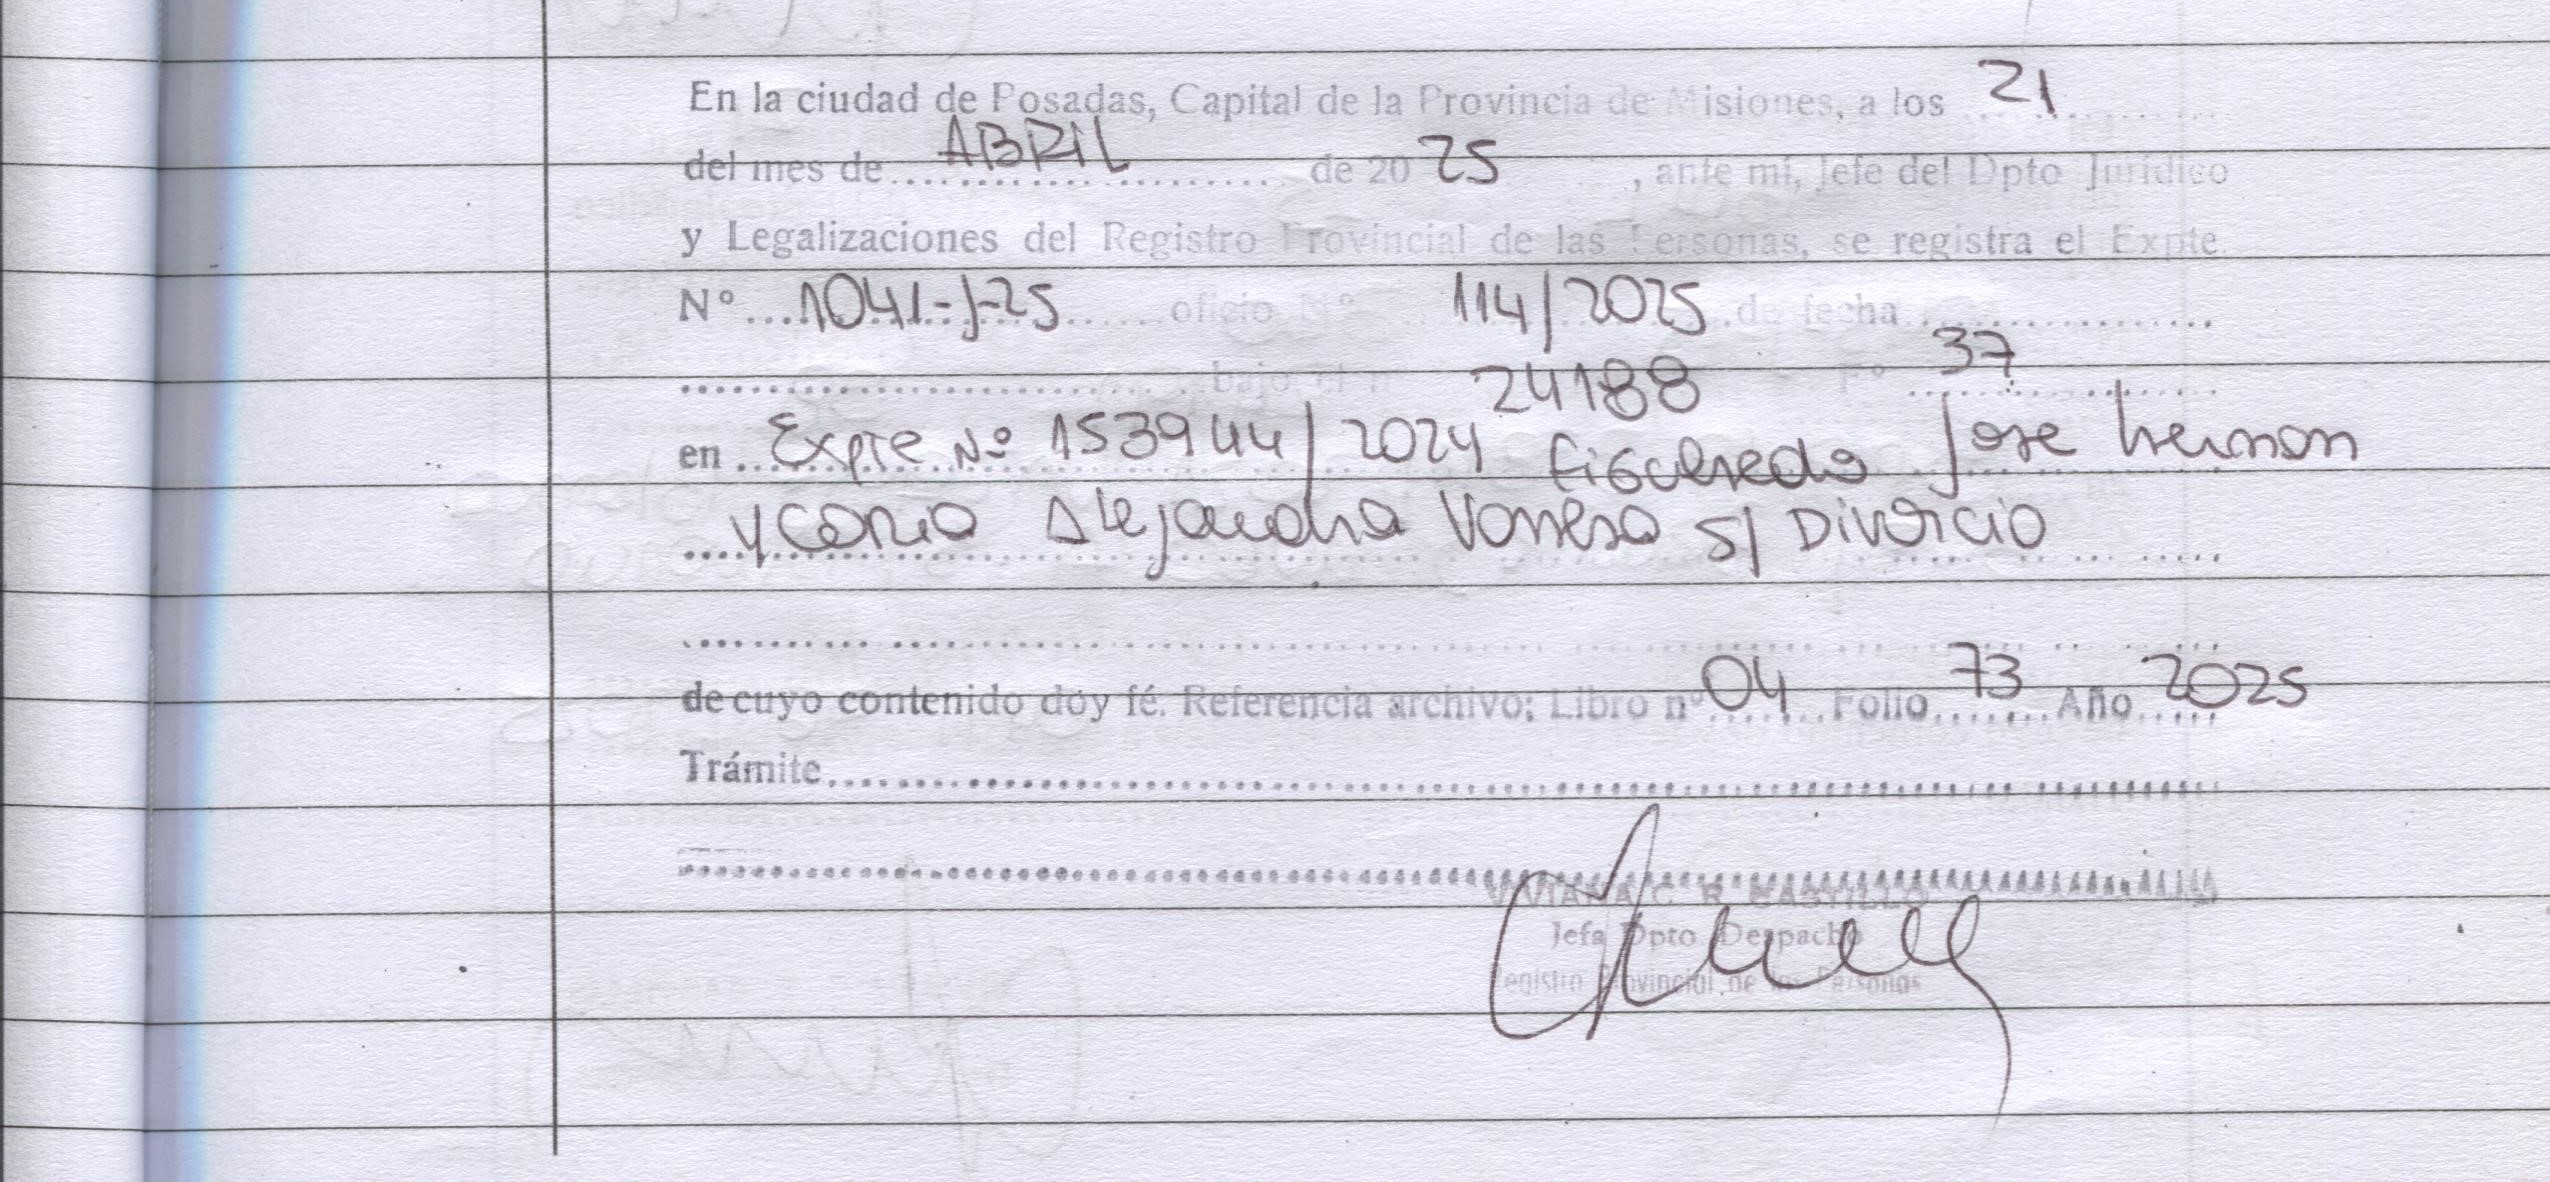 En la ciudad de Posadas, Capital de la Provincia de Misiones, a los 21
del mes de ABRIL de 20 25, ante mí, Jefe del Dpto Jurídico
y Legalizaciones del Registro Provincial de las Personas, se registra el Expte.
N° 1041-J-25 oficio N° 114/2025 de fecha
bajo el n° 24188 F° 37
en Expte Nº 153944/2024 Figueredo Jose hernan
y Coria Alejandra Vanesa S/ Divorcio
de cuyo contenido doy fé. Referencia archivo: Libro n° 04 Folio 73 Año 2025
Trámite
VIVIANA C. R. CASTILLO
Jefa Dpto. Despacho
Registro Provincial de las Personas